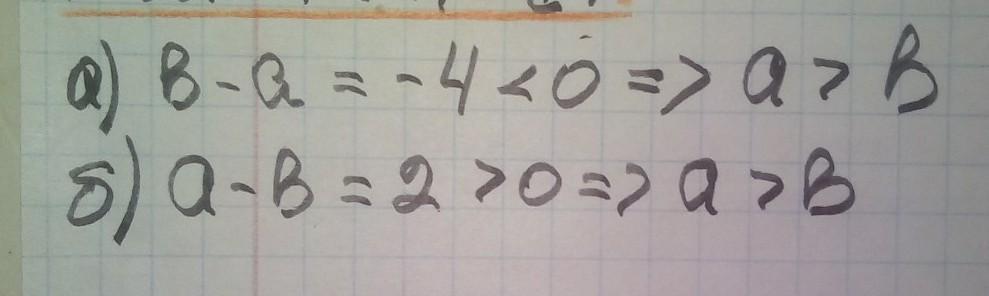 а) в - а = -4 < 0 => а > в
б) а - в = 2 > 0 => а > в